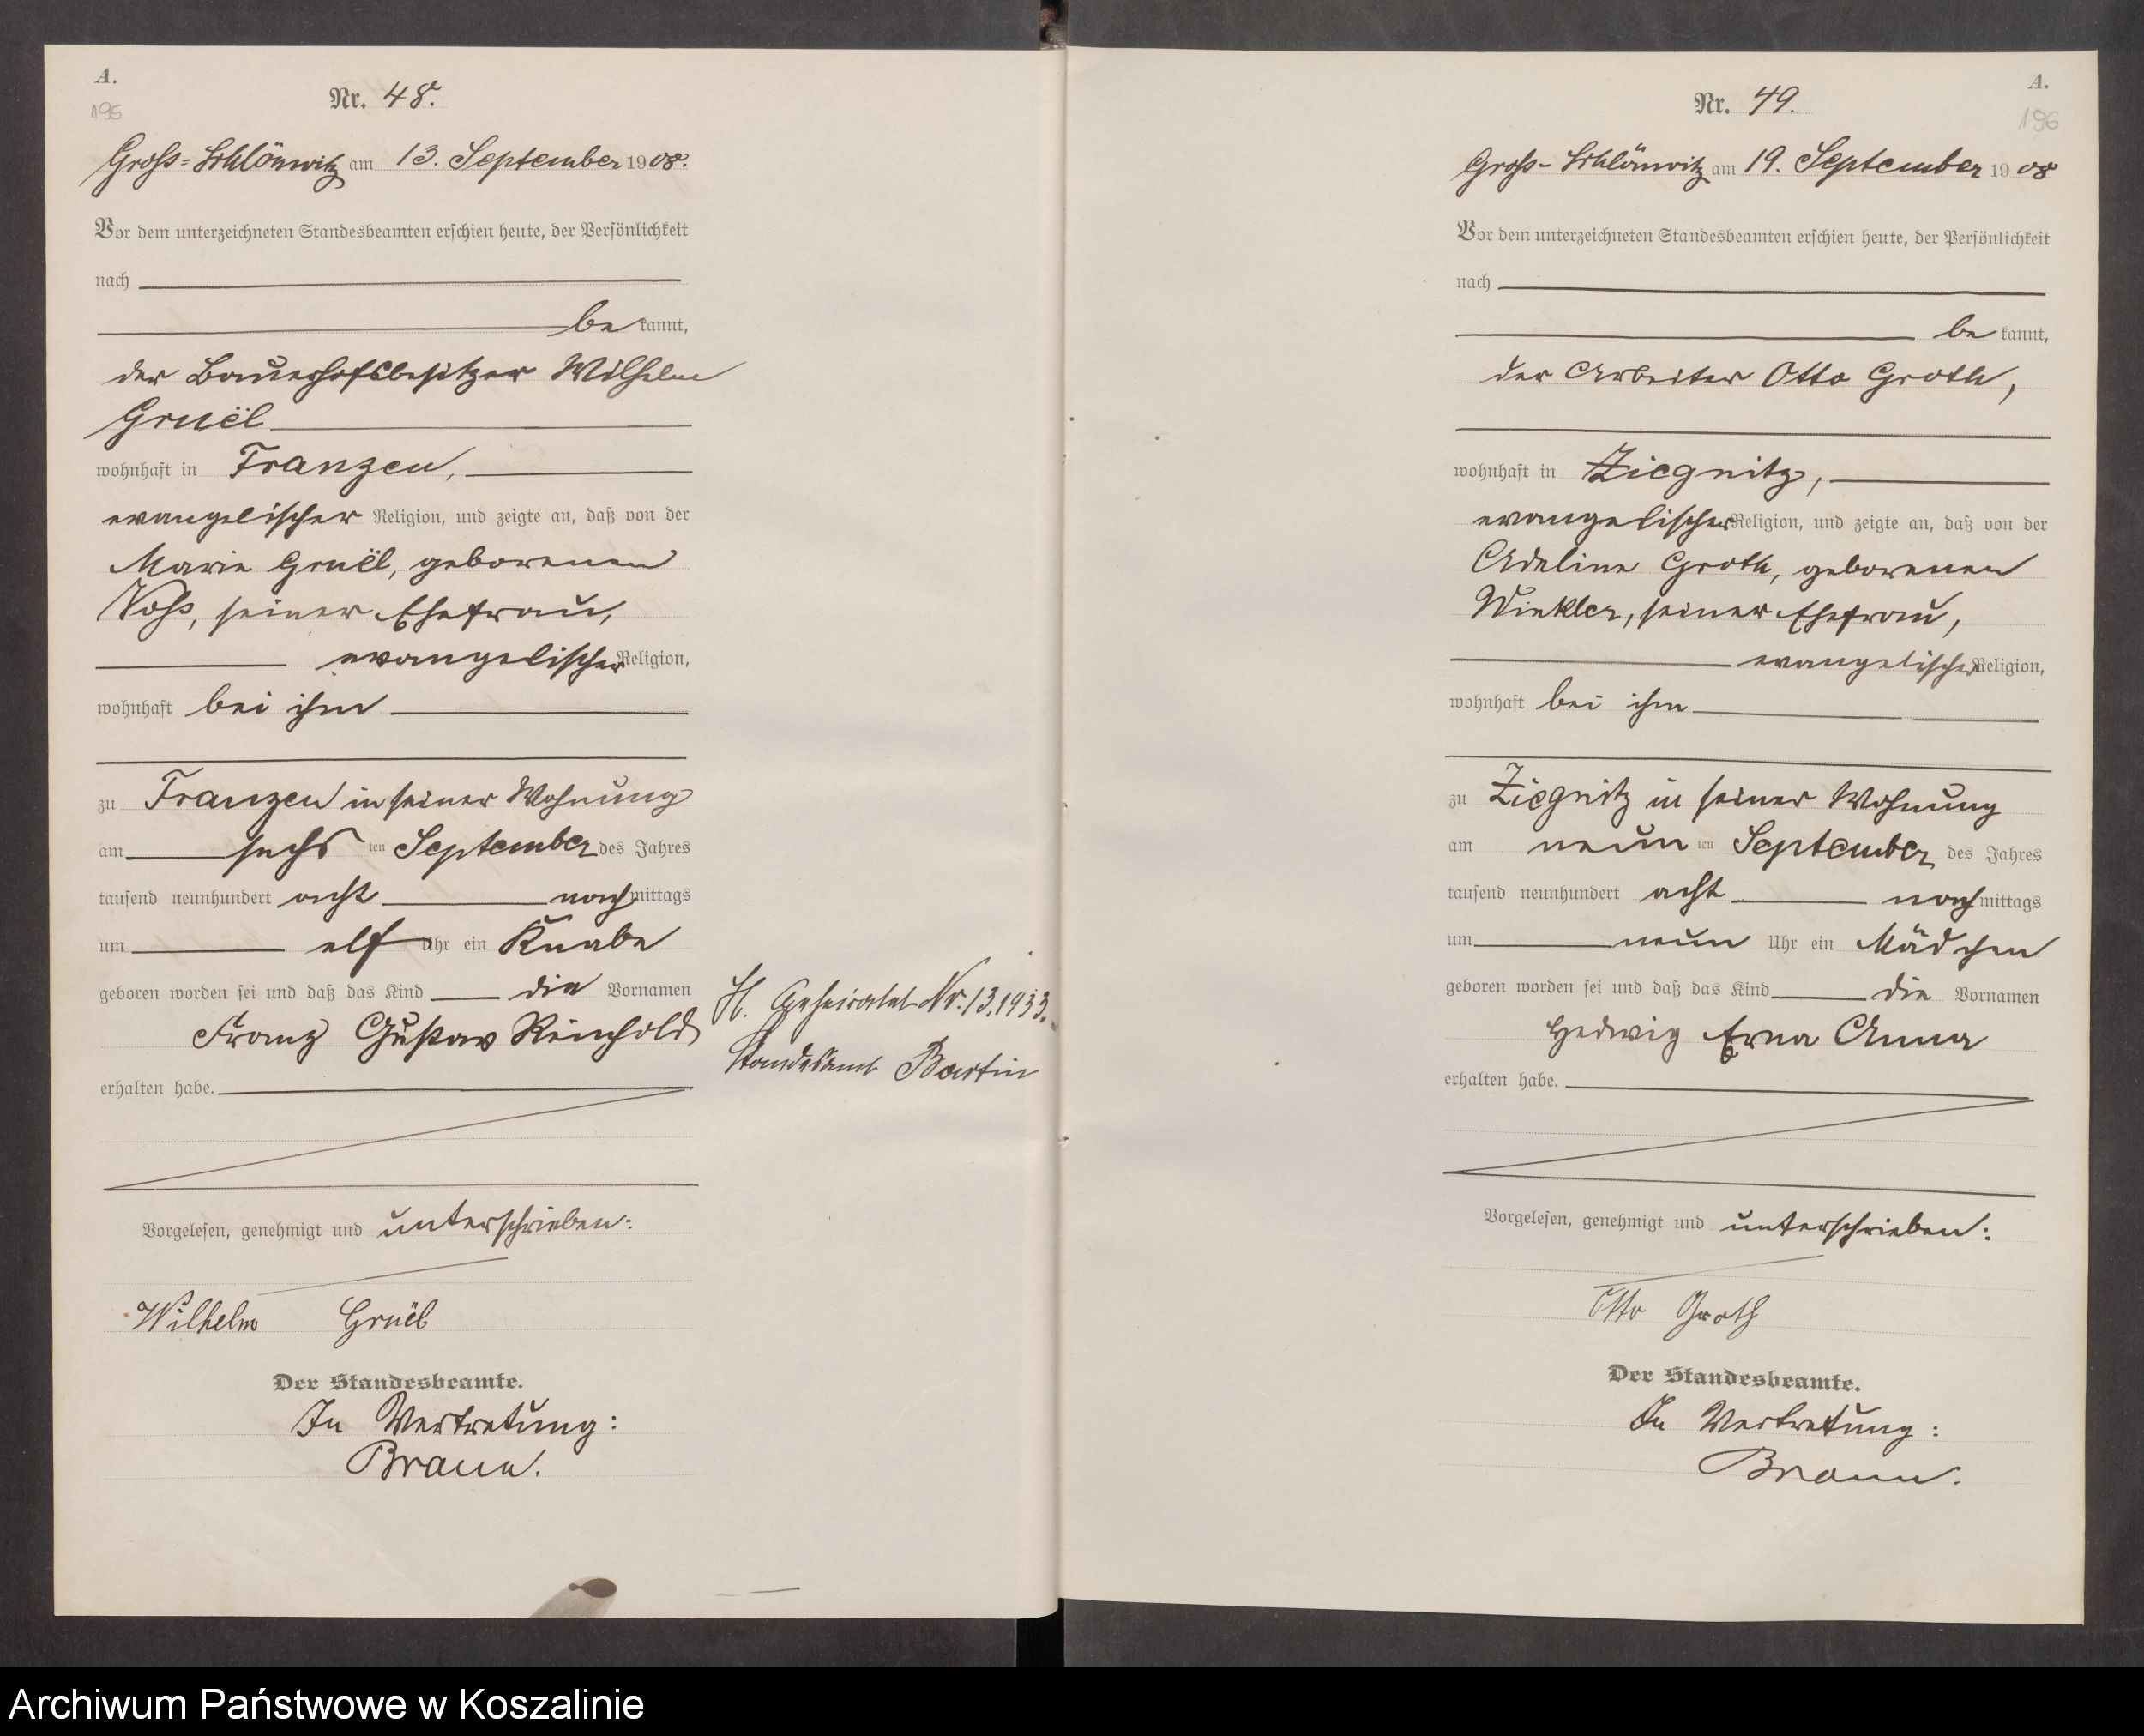 A.
195
Nr. 48.
Groß-Schlönwitz am 13. September 1908.
Vor dem unterzeichneten Standesbeamten erschien heute, der Persönlichkeit
nach
be kannt,
der Bauerhofsbesitzer Wilhelm
Gruël
wohnhaft in Franzen,
evangelischer Religion, und zeigte an, daß von der
Marie Gruël, geborenen
Voß, seiner Ehefrau,
evangelischer Religion,
wohnhaft bei ihm
zu Franzen in seiner Wohnung
am sechs ten September des Jahres
tausend neunhundert acht nachmittags
um elf Uhr ein Knabe
geboren worden sei und daß das Kind die Vornamen
Franz Gustav Reinhold
erhalten habe.
H. Geheiratet Nr. 13.1933.
Standesamt Bartin
Vorgelesen, genehmigt und unterschrieben:
Wilhelm Gruël
Der Standesbeamte.
In Vertretung:
Braun.
A.
196
Nr. 49.
Groß-Schlönwitz am 19. September 1908
Vor dem unterzeichneten Standesbeamten erschien heute, der Persönlichkeit
nach
be kannt,
der Arbeiter Otto Groth,
wohnhaft in Ziegnitz,
evangelischer Religion, und zeigte an, daß von der
Adeline Groth, geborenen
Winkler, seiner Ehefrau,
evangelischer Religion,
wohnhaft bei ihm
zu Ziegnitz in seiner Wohnung
am neun ten September des Jahres
tausend neunhundert acht nachmittags
um neun Uhr ein Mädchen
geboren worden sei und daß das Kind die Vornamen
Hedwig Erna Anna
erhalten habe.
Vorgelesen, genehmigt und unterschrieben:
Otto Groth
Der Standesbeamte.
In Vertretung:
Braun.
Archiwum Państwowe w Koszalinie